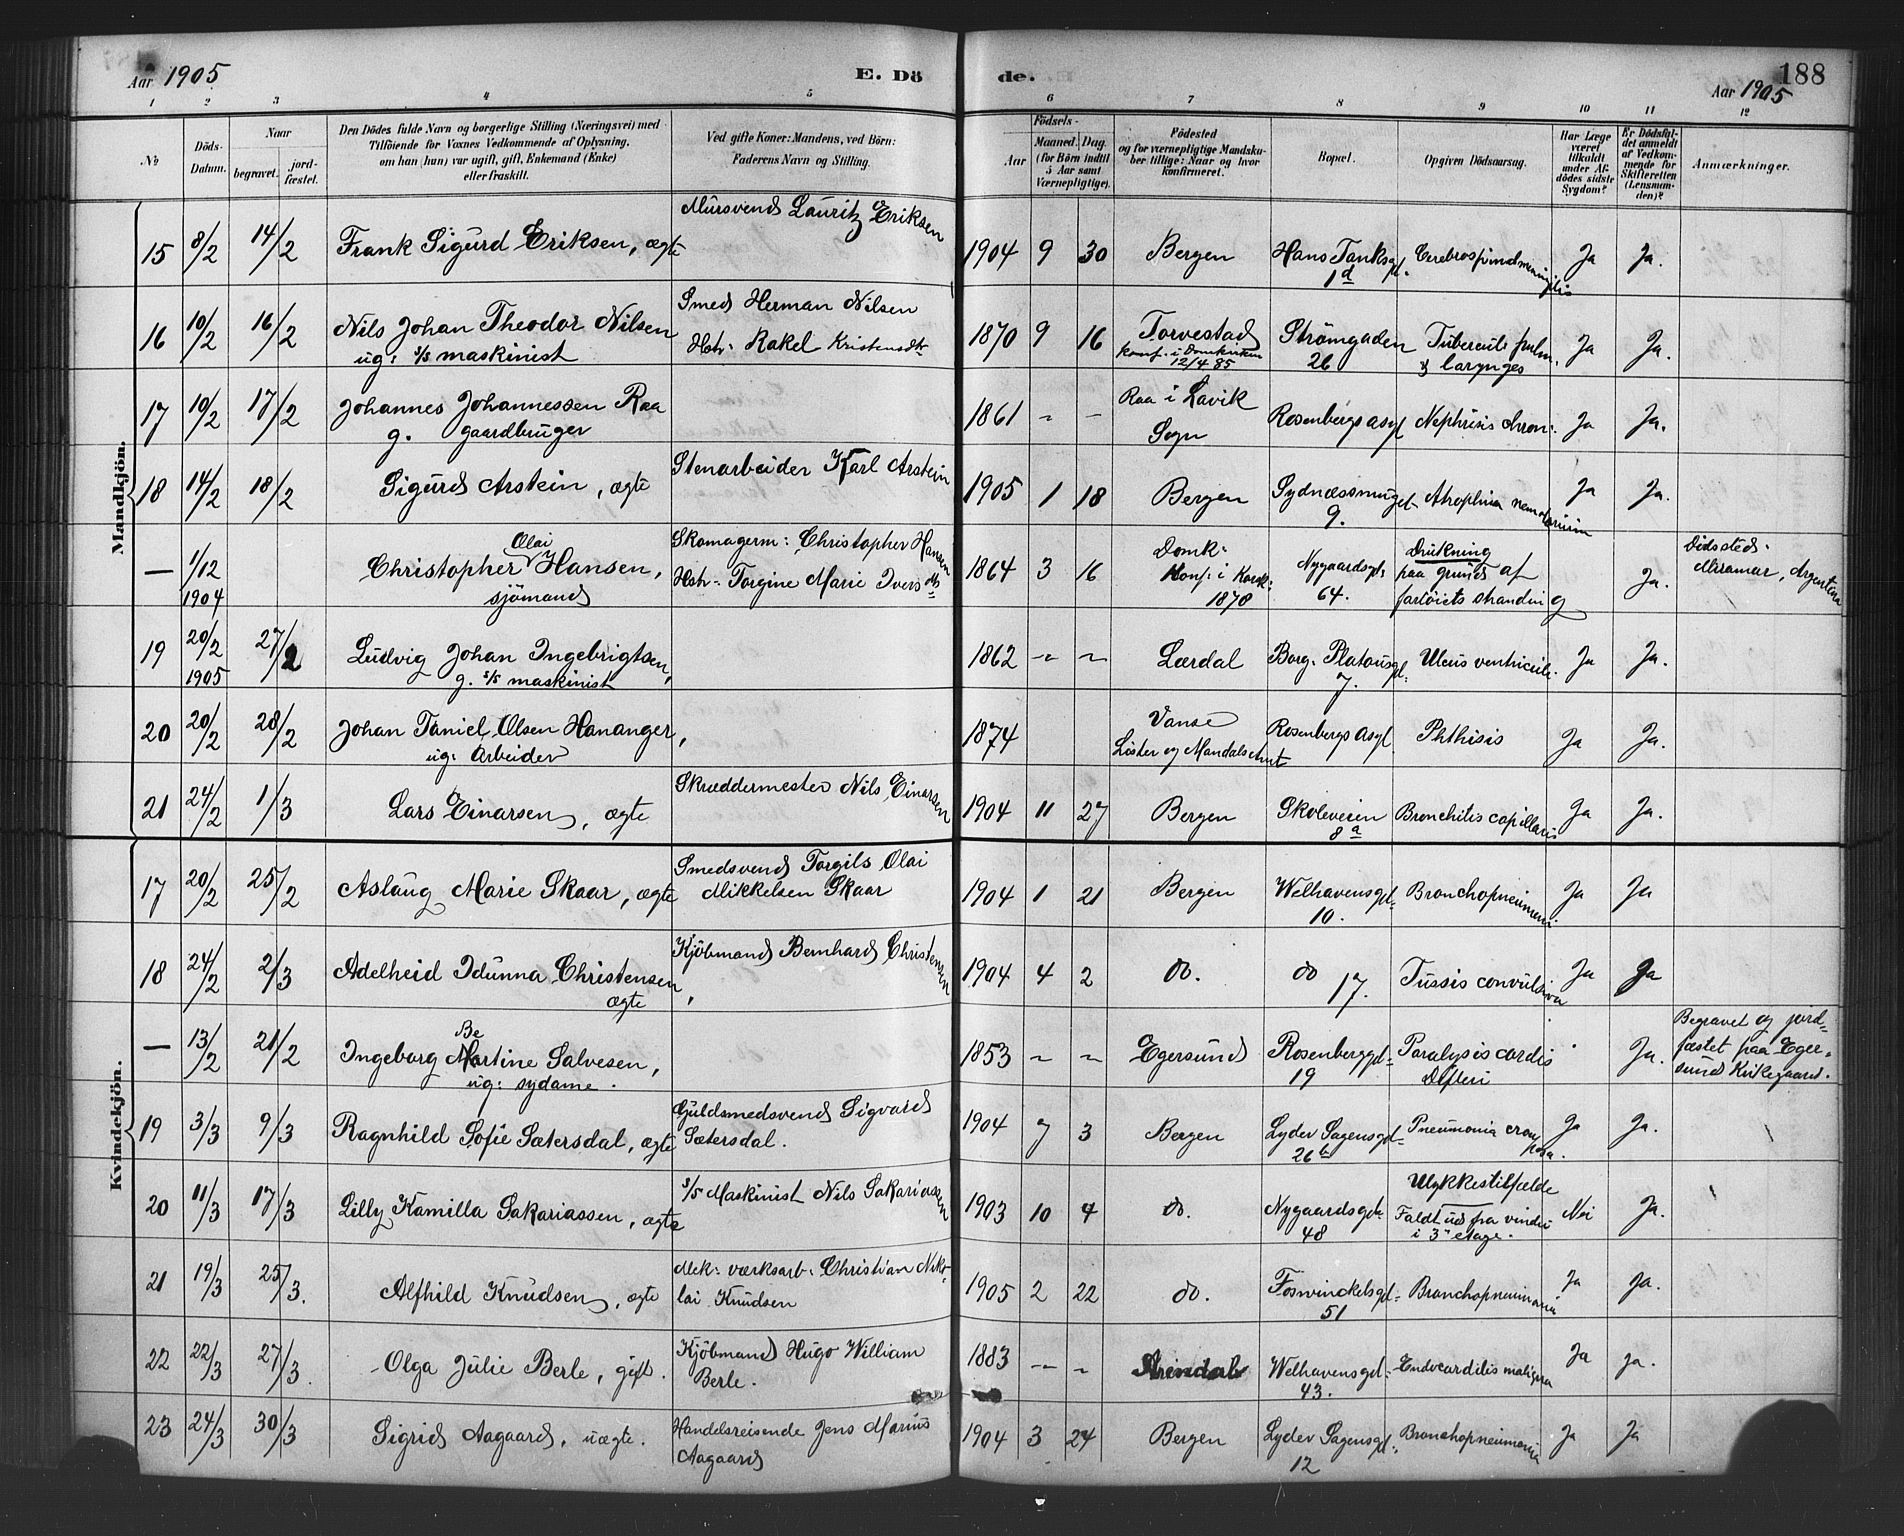 Aar 1905
E. Dö
de.
188
Aar 1905
1 2 3 4 5 6 7 8 9 10 11 12
No
Döds-
Datum.
Naar
begravet.
jord-
fæstet.
Den Dödes fulde Navn og borgerlige Stilling (Næringsvei) med
Tilföiende for Voxnes Vedkommende af Oplysning,
om han (hun) var ugift, gift, Enkemand (Enke)
eller fraskilt.
Ved gifte Koner: Mandens, ved Börn:
Faderens Navn og Stilling.
Födsels-
Aar
Maaned. Dag.
(for Börn indtil
5 Aar samt
Værnepligtige).
Födested
og for værnepligtige Mandsku-
ber tillige: Naar og hvor
konfirmeret.
Bopæl.
Opgiven Dödsaarsag.
Har Læge
været
tilkaldt
under Af-
dödes sidste
Sygdom?
Er Dödsfal-
det anmeldt
af Vedkom-
mende for
Skifteretten
(Lensman-
den)?
Anmærkninger.
Mandkjön.
15 8/2 14/2 Frank Sigurd Eriksen, ægte Mursvend Lauritz Eriksen 1904 9 30 Bergen Hans Tanksgd. 1d Cerebrospinalmeningitis Ja Ja.
16 10/2 16/2 Nils Johan Theodor Nilsen
ug: s/s maskinist
Smed Herman Nilsen
Hstr: Rakel Kristensdtr
1870 9 16 Torvestad
konf. i Domkirken
12/4 85
Strömgaden
26
Tubercul. pulm.
& larynges
Ja Ja.
17 10/2 17/2 Johannes Johannessen Raa
g. gaardbruger
1861 - - Raa i Lavik
Sogn
Rosenbergs asyl Nephrisis chron: Ja Ja.
18 14/2 18/2 Sigurd Arstein, ægte Stenarbeider Karl Arstein 1905 1 18 Bergen Sydnæssmuget
9.
Atrophia neonatorum Ja Ja.
— 1/12
1904
Christopher Olai Hansen,
sjömand
Skomagerm: Christopher Hansen
Hstr: Torgine Marie Iversdtr
1864 3 16 Domk:
Konf: i Korsk:
1878
Nygaardsgd:
64.
Drukning
paa grund af
fartöiets stranding
Ja. Dödssted:
Miramar, Argentina
19 20/2
1905
27/2 Ludvig Johan Ingebrigtsen,
g. s/s maskinist
1862 - - Lærdal Borg. Platousgd:
7.
Ulcus ventriculi. Ja Ja.
20 20/2 28/2 Johan Taniel Olsen Hananger,
ug: Arbeider
1874 Vanse
Lister og Mandals Amt
Rosenbergs Asyl Phthisis Ja Ja.
21 24/2 1/3 Lars Einarsen, ægte Skræddermester Nils Einarsen 1904 11 27 Bergen Skoleveien
8a
Bronchitis capillaris Ja Ja.
Kvindekjön.
17 20/2 25/2 Aslaug Marie Skaar, ægte Smedsvend Torgils Olai
Mikkelsen Skaar
1904 1 21 Bergen Welhavensgd:
10.
Bronchopneumoni. Ja Ja
18 24/2 2/3 Adelheid Idunna Christensen,
ægte
Kjöbmand Bernhard Christensen 1904 4 2 do. do
17.
Tussis convulsiva Ja Ja
— 13/2 21/2 Ingeborg Be Martine Salvesen,
ug: sydame.
1853 - - Egersund Rosenberggd:
19
Paralysis cordis
Difteri
Ja. Begravet og jord-
fæstet paa Eger-
sund Kirkegaard.
19 3/3 9/3 Ragnhild Sofie Sætersdal, ægte Guldsmedsvend Sigvard
Sætersdal.
1904 7 3 Bergen Lyder Sagensgd:
26b
Pneumonia crouposa. Ja Ja.
20 11/3 17/3 Lilly Kamilla Sakariassen, ægte s/s Maskinist Nils Sakariassen 1903 10 4 do. Nygaardsgd:
48
Ulykkestilfælde
Faldt ud fra vindu
i 3' etage.
Nei Ja.
21 19/3 25/3. Alfhild Knudsen, ægte Mek: værksarb: Christian Niko-
lai Knudsen
1905 2 22 do. Fosswinckelsgd:
51
Bronchopneumonia Ja Ja.
22 22/3 27/3. Olga Julie Berle, gift. Kjöbmand Hugo William
Berle.
1883 - - Arendal Welhavensgd:
43.
Endocarditis maligna Ja Ja.
23 24/3 30/3 Sigrid Aagaard, uægte. Handelsreisende Jens Marius
Aagaard
1904 3 24 Bergen Lyder Sagensgd:
12
Bronchopneumonia Ja Ja